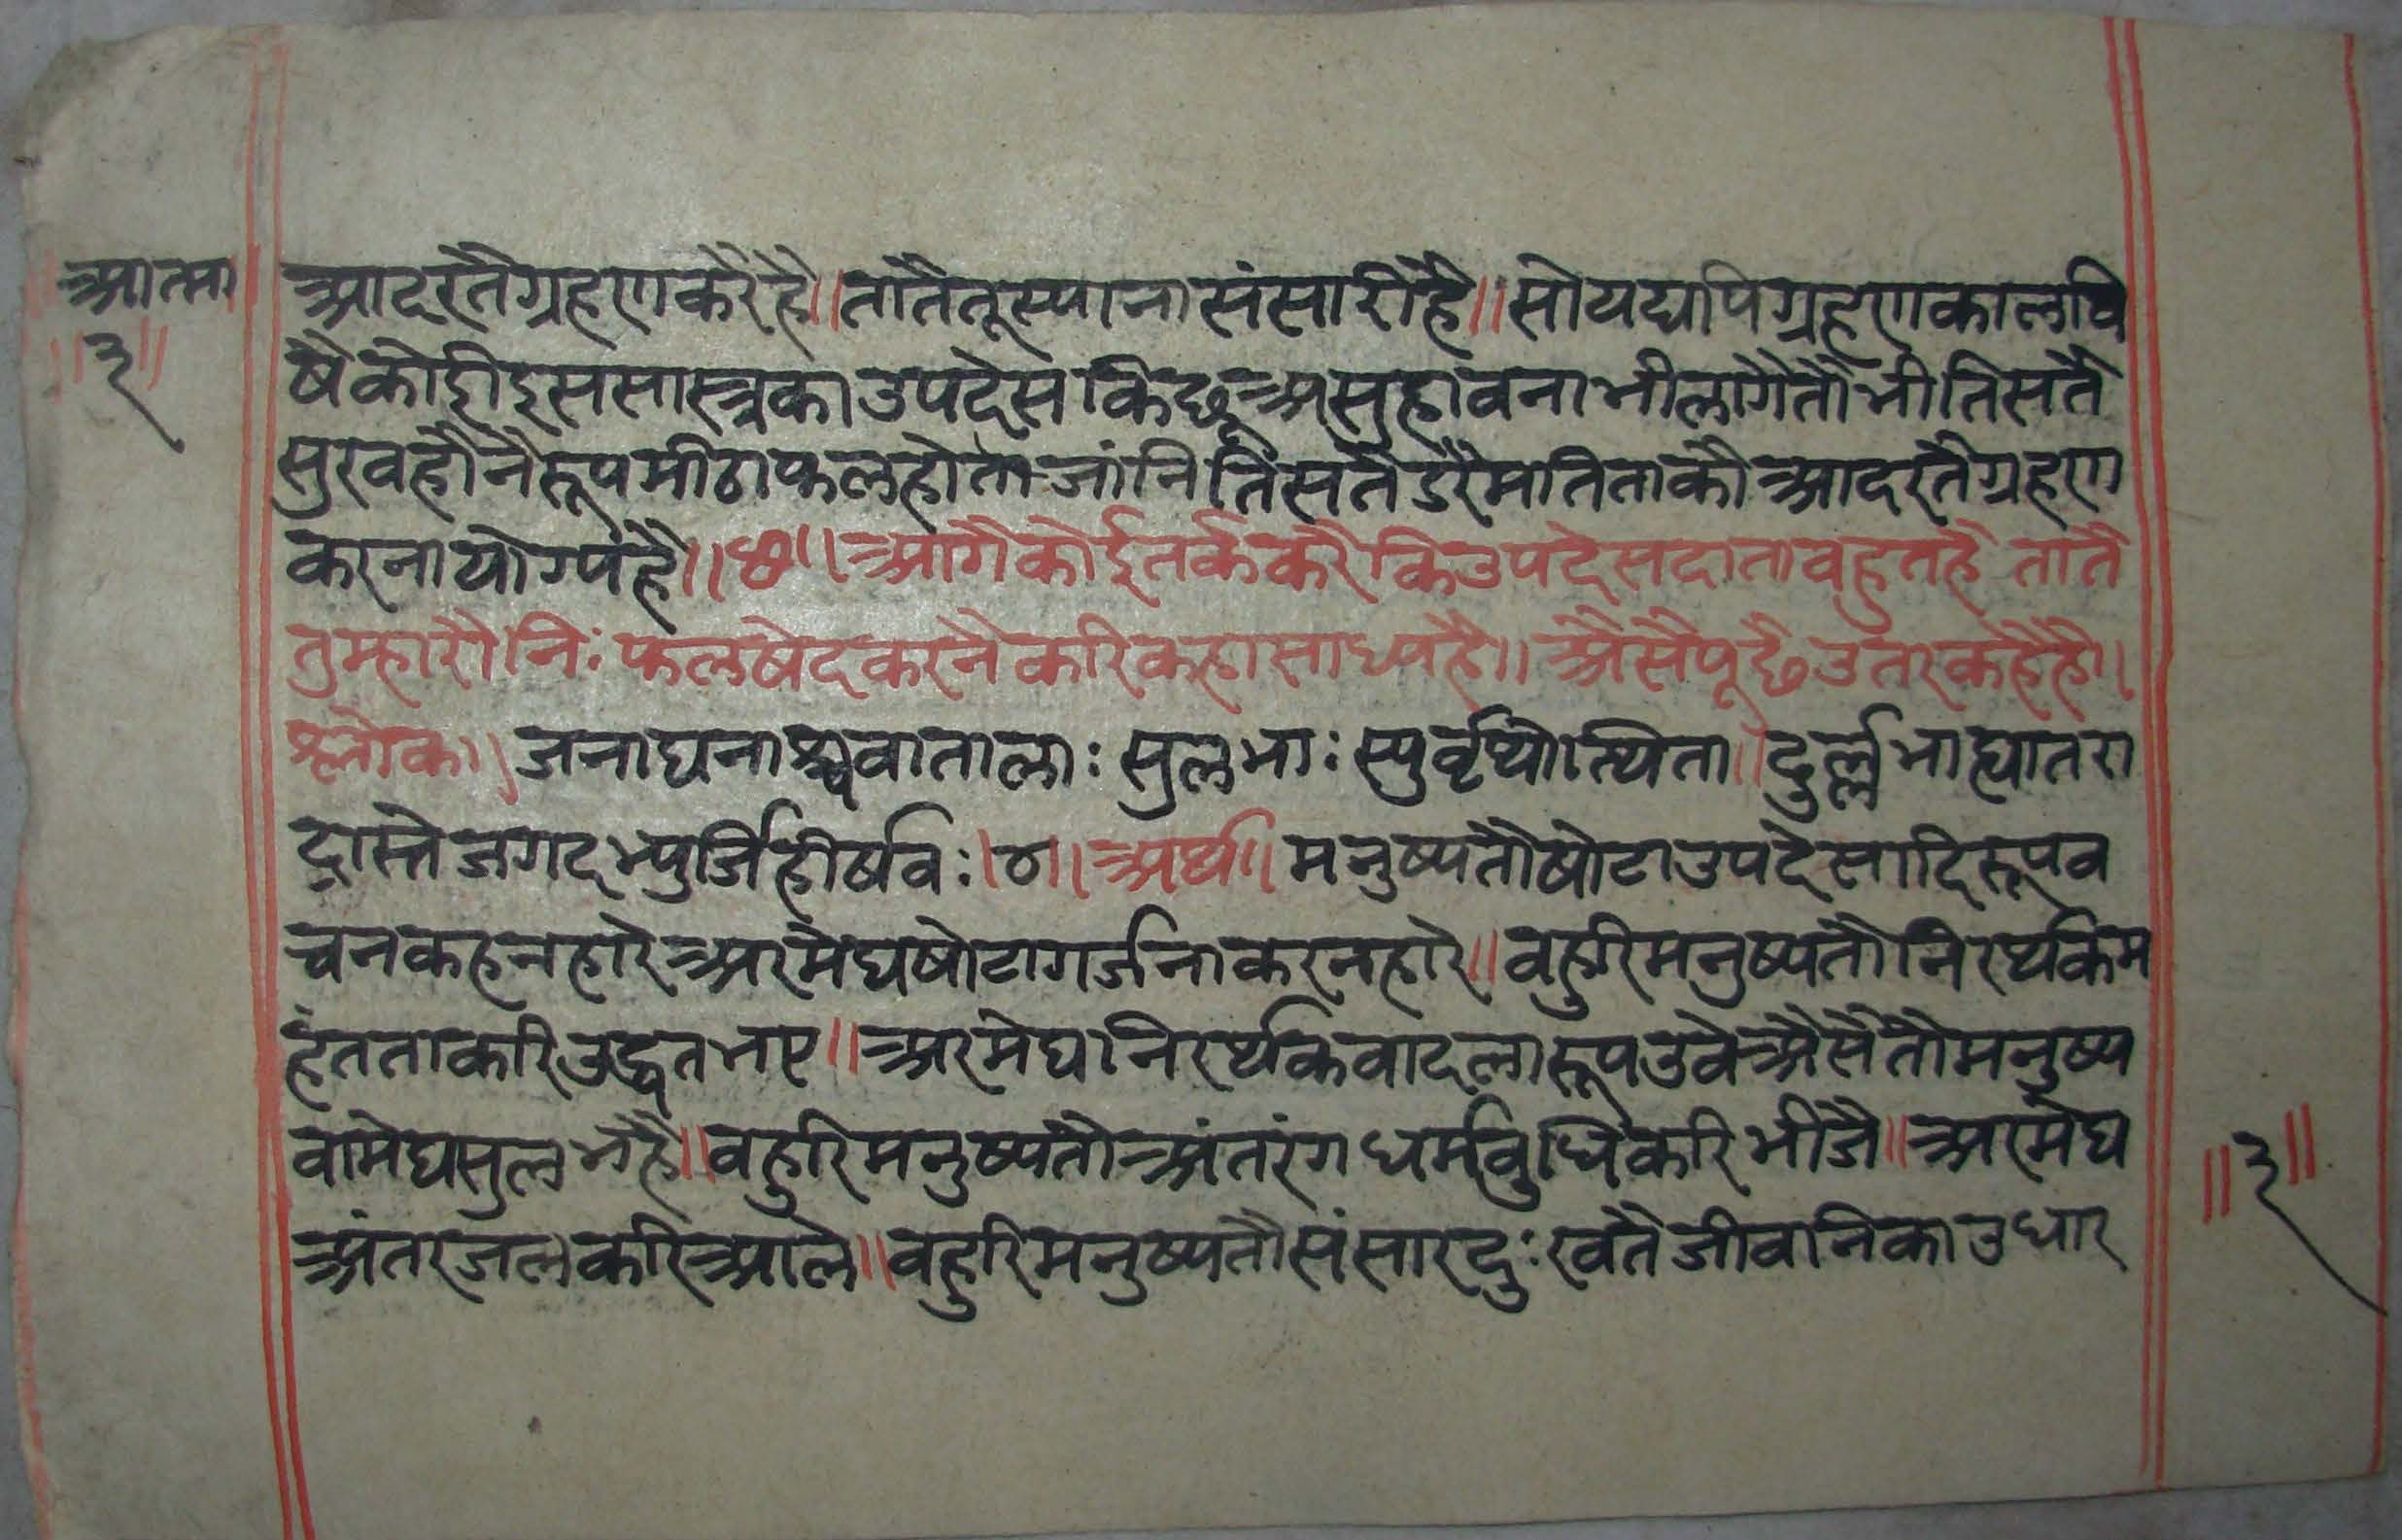 आत्मा
॥३॥
आदरतैग्रहणकरैहै॥तातैतूस्यानासंसारीहै॥सोयद्यपिग्रहणकालवि
षैकोईइससास्त्रकाउपदेसकिछूअसुहावनाभीलागैतौभीतिसतै
सुखहौनैरूपमीठाफलहोताजांनितिसतैडरैमातिताकौआदरतैग्रहण
करनायोग्यहै॥छ॥आगैकोईतर्ककरैकिउपदेसदातावहुतहै तातै
तुम्हारौनिःफलषेदकरनैकरिकहासाध्यहै॥अैसैपूछैउतरकहैहै॥
श्लोक॥जनाघनाश्चवातालाःसुलभाःस्युर्वृथोत्थिता॥दुर्ल्लभाह्यातरा
द्रास्तेजगदभ्युर्जिहीर्षवः।४।अर्थ॥मनुष्यतौषोटाउपदेसादिरूपव
चनकहनहारेअरमेघषोटागर्जनाकरनहारे॥वहुरिमनुष्यतौनिरर्थकम
हंतताकरिउद्धतभए॥अरमेघानिरर्थकवादलारूपउवेअैसैतौमनुष्य
वामेघसुलभहै॥वहुरिमनुष्यतौअंतरंगधर्मवुधिकरिभीजै॥अरमेघ
अंतरजलकरिआले॥वहुरिमनुष्यतौसंसारदुःखतैजीवानिकाउधार
॥३॥